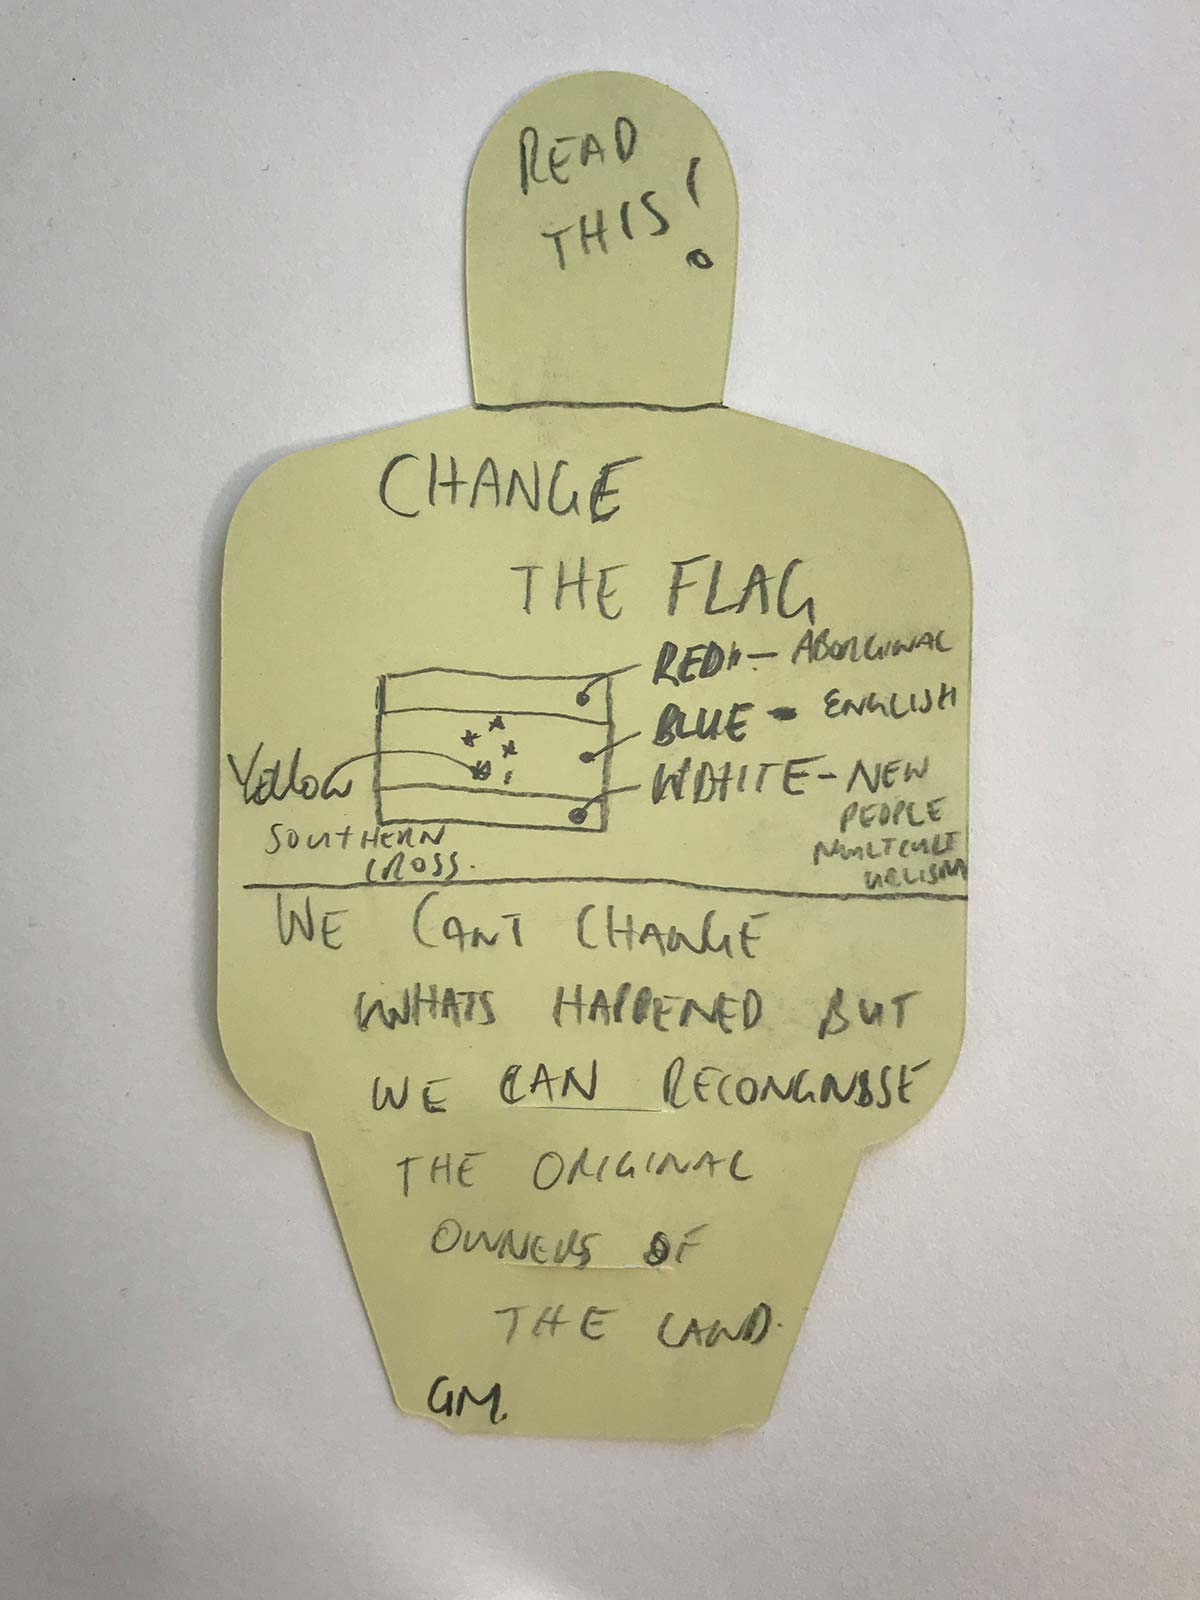 READ
THIS!
CHANGE
THE FLAG
RED - ABORGINAL
BLUE - ENGLISH
WHITE - NEW
PEOPLE
MULTCULT
URLISM
Yellow
SOUTHERN
CROSS.
WE CANT CHANGE
WHATS HAPPENED BUT
WE CAN RECONGNISE
THE ORIGINAL
OWNERS OF
THE LAND.
GM.